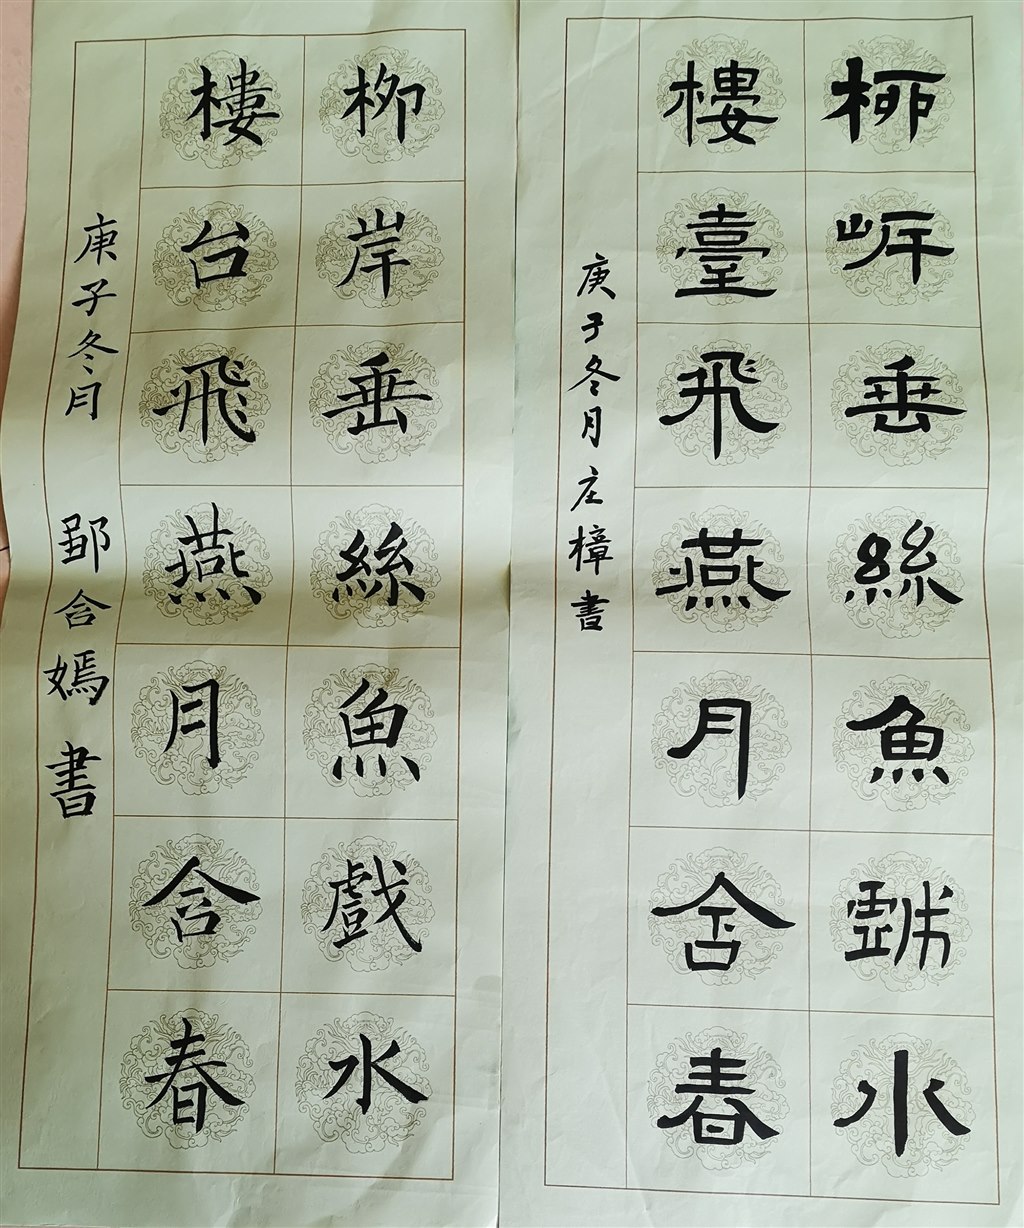 柳岸垂絲魚戲水
樓臺飛燕月含春
庚子冬月庄樟書
柳岸垂絲魚戲水
樓台飛燕月含春
庚子冬月 郢含嫣書